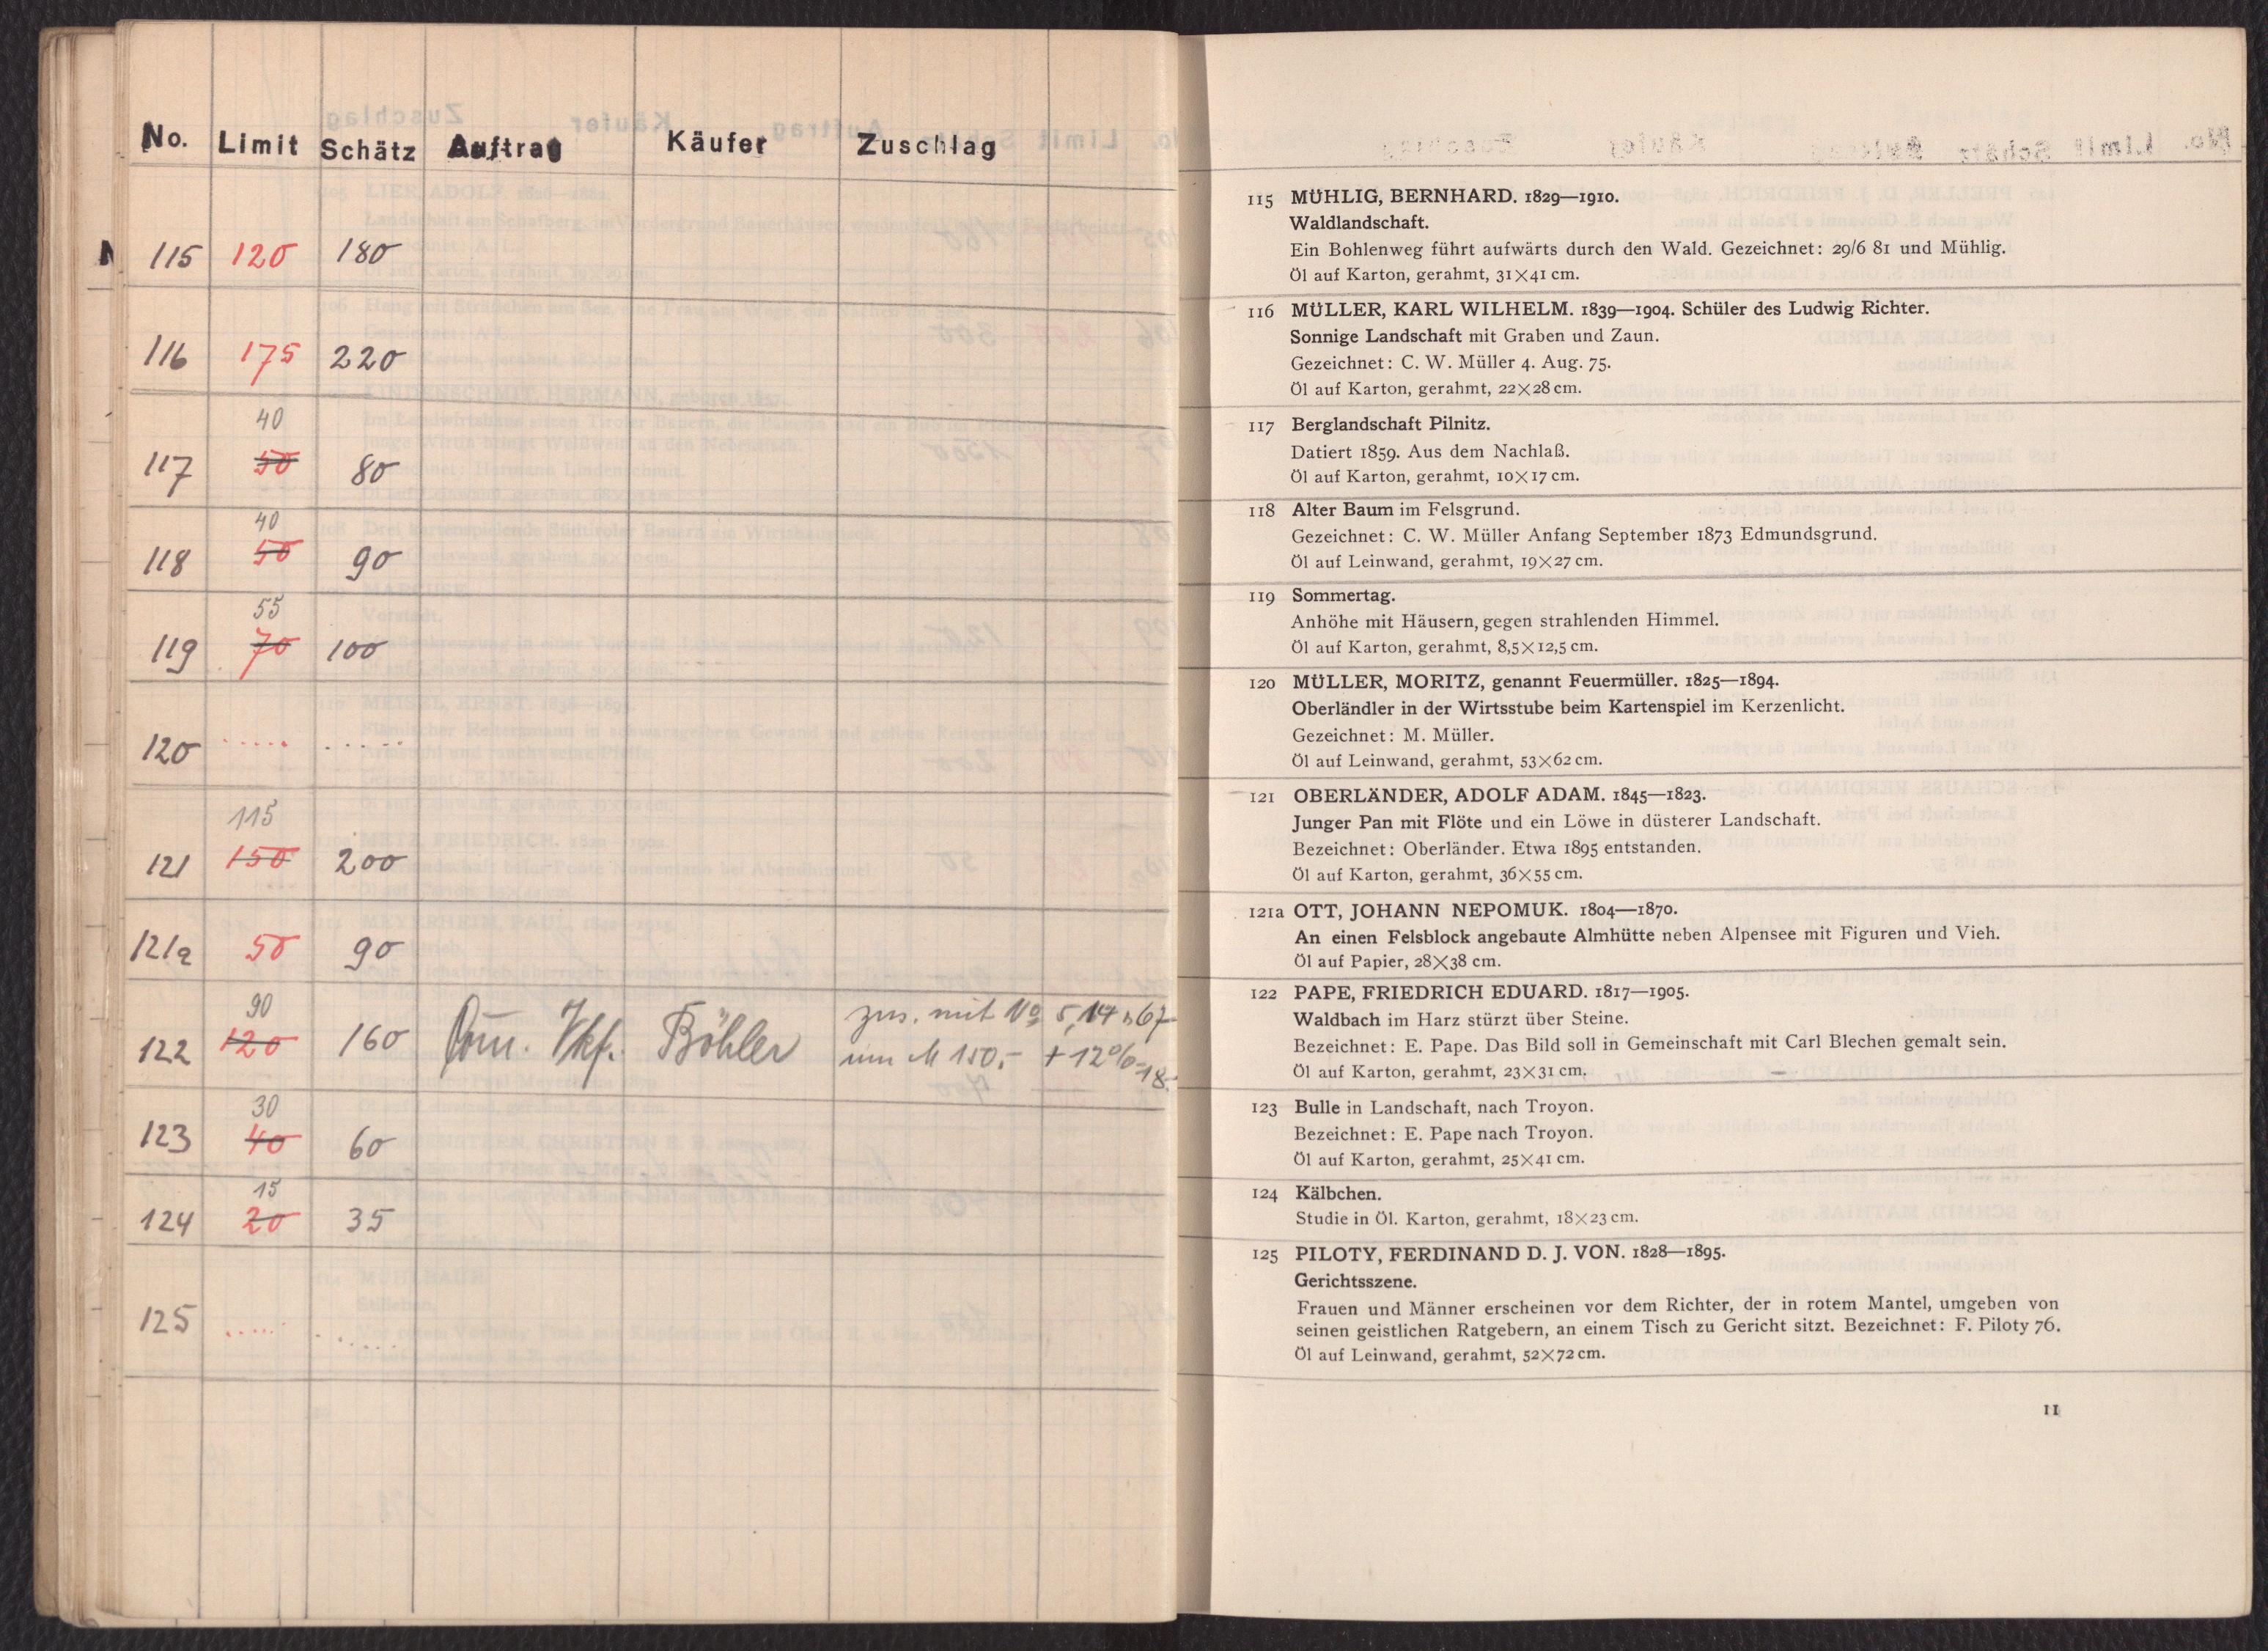 No. Limit Schätz Auftrag Käufer Zuschlag
115 120 180
116 175 220
40
117 50 80
40
118 50 90
55
119 70 100
120 ..... .....
115
121 150 200
121a 50 90
90 zus. mit No 5, 14 u 67
122 120 160 Böhler um M 150.- + 12% = 18.-
30
123 40 60
15
124 20 35
125 ..... .....
115 MÜHLIG, BERNHARD. 1829—1910.
Waldlandschaft.
Ein Bohlenweg führt aufwärts durch den Wald. Gezeichnet: 29/6 81 und Mühlig.
Öl auf Karton, gerahmt, 31×41 cm.
116 MÜLLER, KARL WILHELM. 1839—1904. Schüler des Ludwig Richter.
Sonnige Landschaft mit Graben und Zaun.
Gezeichnet: C. W. Müller 4. Aug. 75.
Öl auf Karton, gerahmt, 22×28 cm.
117 Berglandschaft Pilnitz.
Datiert 1859. Aus dem Nachlaß.
Öl auf Karton, gerahmt, 10×17 cm.
118 Alter Baum im Felsgrund.
Gezeichnet: C. W. Müller Anfang September 1873 Edmundsgrund.
Öl auf Leinwand, gerahmt, 19×27 cm.
119 Sommertag.
Anhöhe mit Häusern, gegen strahlenden Himmel.
Öl auf Karton, gerahmt, 8,5×12,5 cm.
120 MÜLLER, MORITZ, genannt Feuermüller. 1825—1894.
Oberländler in der Wirtsstube beim Kartenspiel im Kerzenlicht.
Gezeichnet: M. Müller.
Öl auf Leinwand, gerahmt, 53×62 cm.
121 OBERLÄNDER, ADOLF ADAM. 1845—1823.
Junger Pan mit Flöte und ein Löwe in düsterer Landschaft.
Bezeichnet: Oberländer. Etwa 1895 entstanden.
Öl auf Karton, gerahmt, 36×55 cm.
121a OTT, JOHANN NEPOMUK. 1804—1870.
An einen Felsblock angebaute Almhütte neben Alpensee mit Figuren und Vieh.
Öl auf Papier, 28×38 cm.
122 PAPE, FRIEDRICH EDUARD. 1817—1905.
Waldbach im Harz stürzt über Steine.
Bezeichnet: E. Pape. Das Bild soll in Gemeinschaft mit Carl Blechen gemalt sein.
Öl auf Karton, gerahmt, 23×31 cm.
123 Bulle in Landschaft, nach Troyon.
Bezeichnet: E. Pape nach Troyon.
Öl auf Karton, gerahmt, 25×41 cm.
124 Kälbchen.
Studie in Öl. Karton, gerahmt, 18×23 cm.
125 PILOTY, FERDINAND D. J. VON. 1828—1895.
Gerichtsszene.
Frauen und Männer erscheinen vor dem Richter, der in rotem Mantel, umgeben von
seinen geistlichen Ratgebern, an einem Tisch zu Gericht sitzt. Bezeichnet: F. Piloty 76.
Öl auf Leinwand, gerahmt, 52×72 cm.
11